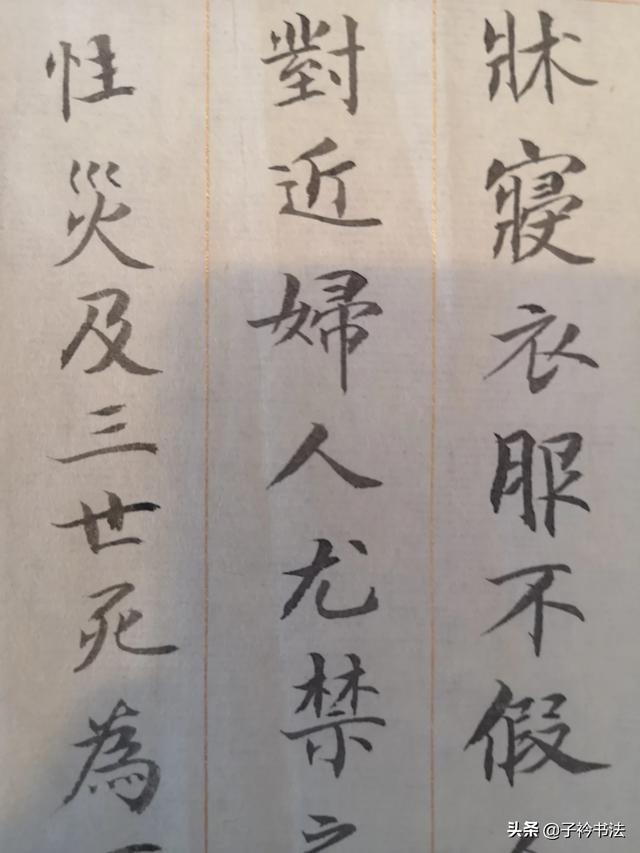 牀寢衣服不假
對近婦人尤禁之
性災及三世死為
头条 @子衿书法